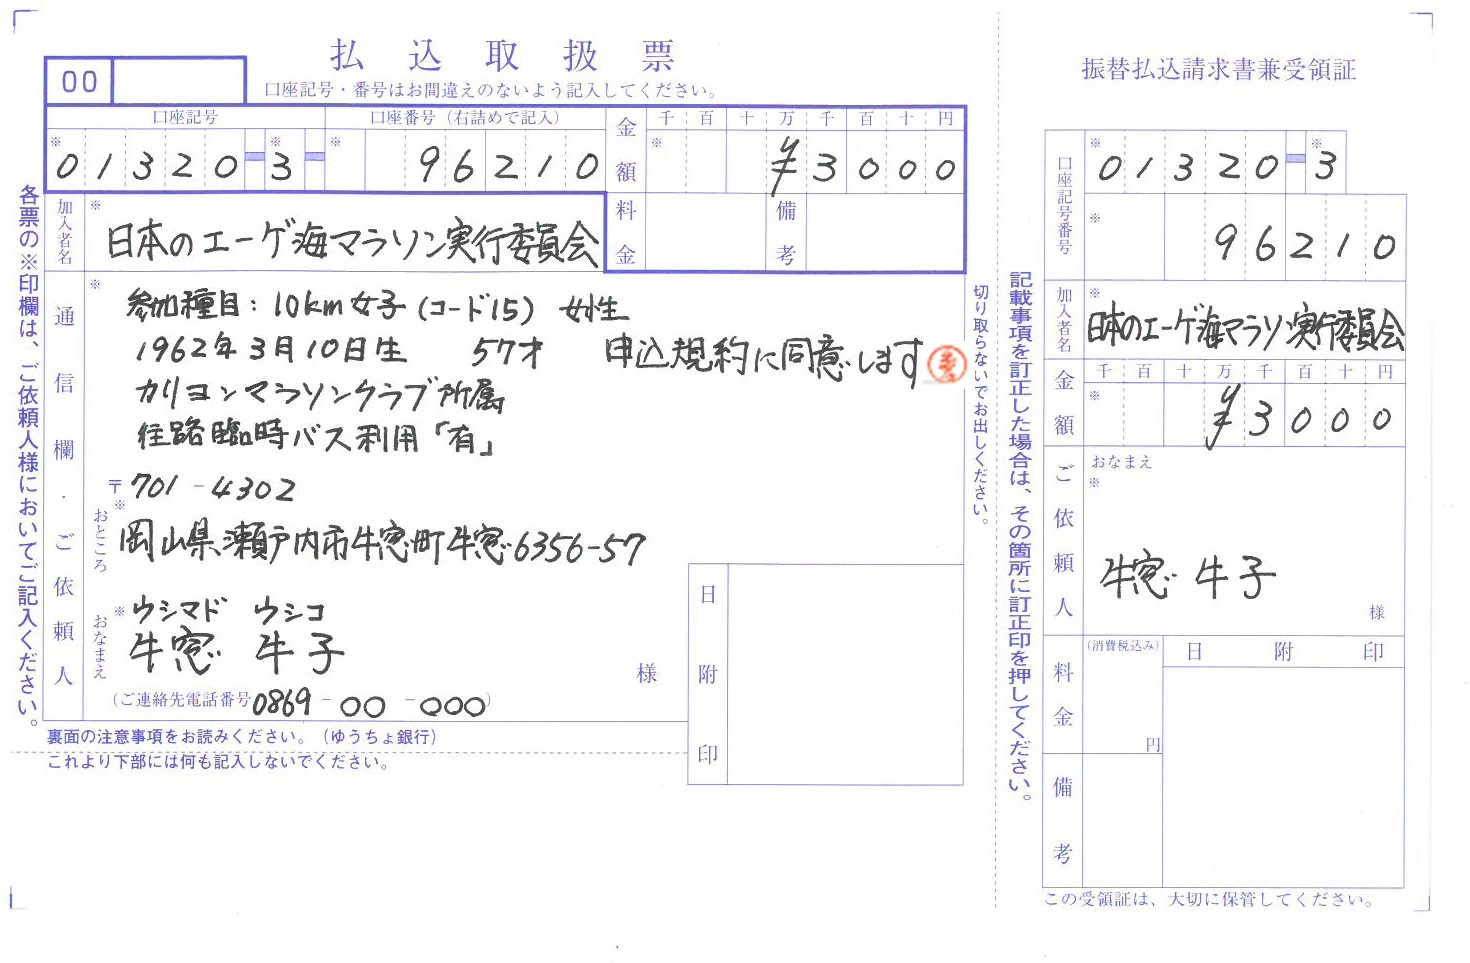 払込取扱票
00
口座記号・番号はお間違えのないよう記入してください。
口座記号 口座番号（右詰めで記入） 金額 千 百 十 万 千 百 十 円
※ 01320-3- ※ 96210 ※ ¥3000
加入者名 ※ 日本のエーゲ海マラソン実行委員会 料金 備考
各票の※印欄は、ご依頼人様においてご記入ください。
通信欄・ご依頼人
※ 参加種目：10km女子（コード15） 女性
1962年3月10日生 57才 申込規約に同意します
カリヨンマラソンクラブ所属
往路臨時バス利用「有」
〒701-4302
おところ ※ 岡山県瀬戸内市牛窓町牛窓6356-57
ウシマド ウシコ
おなまえ ※ 牛窓 牛子 様
（ご連絡先電話番号 0869-00-000）
日附印
裏面の注意事項をお読みください。（ゆうちょ銀行）
これより下部には何も記入しないでください。
切り取らないでお出しください。
記載事項を訂正した場合は、その箇所に訂正印を押してください。
振替払込請求書兼受領証
口座記号番号 ※ 01320-3 ※
※ 96210
加入者名 ※ 日本のエーゲ海マラソン実行委員会
金額 千 百 十 万 千 百 十 円
※ ¥3000
ご依頼人 おなまえ
※
牛窓 牛子
様
料金 （消費税込み） 円
日 附 印
備考
この受領証は、大切に保管してください。